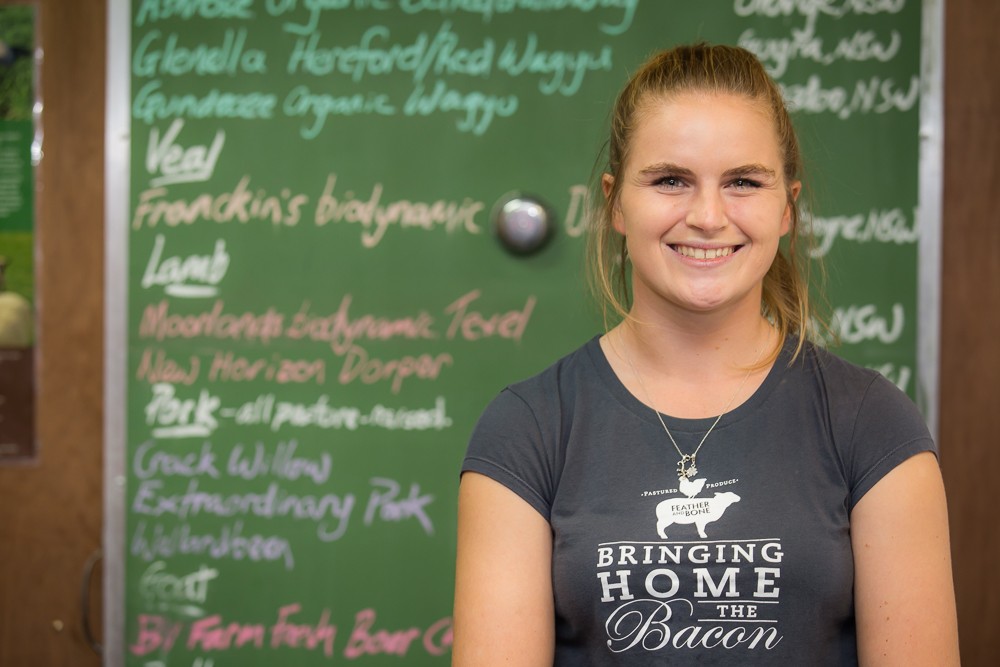 Organic
Orange, NSW
Glenella Hereford/Red Wagyu
NSW
Gundooee Organic Wagyu
NSW
Veal
Franckin's biodynamic
NSW
Lamb
Moorlands biodynamic Texel
NSW
New Horizon Dorper
Pork - all pasture-raised.
Crack Willow
Extraordinary Pork
Wollondbeen
Goat
BJ Farm Fresh Boer
·PASTURED PRODUCE·
FEATHER
AND BONE
BRINGING
HOME
THE
Bacon